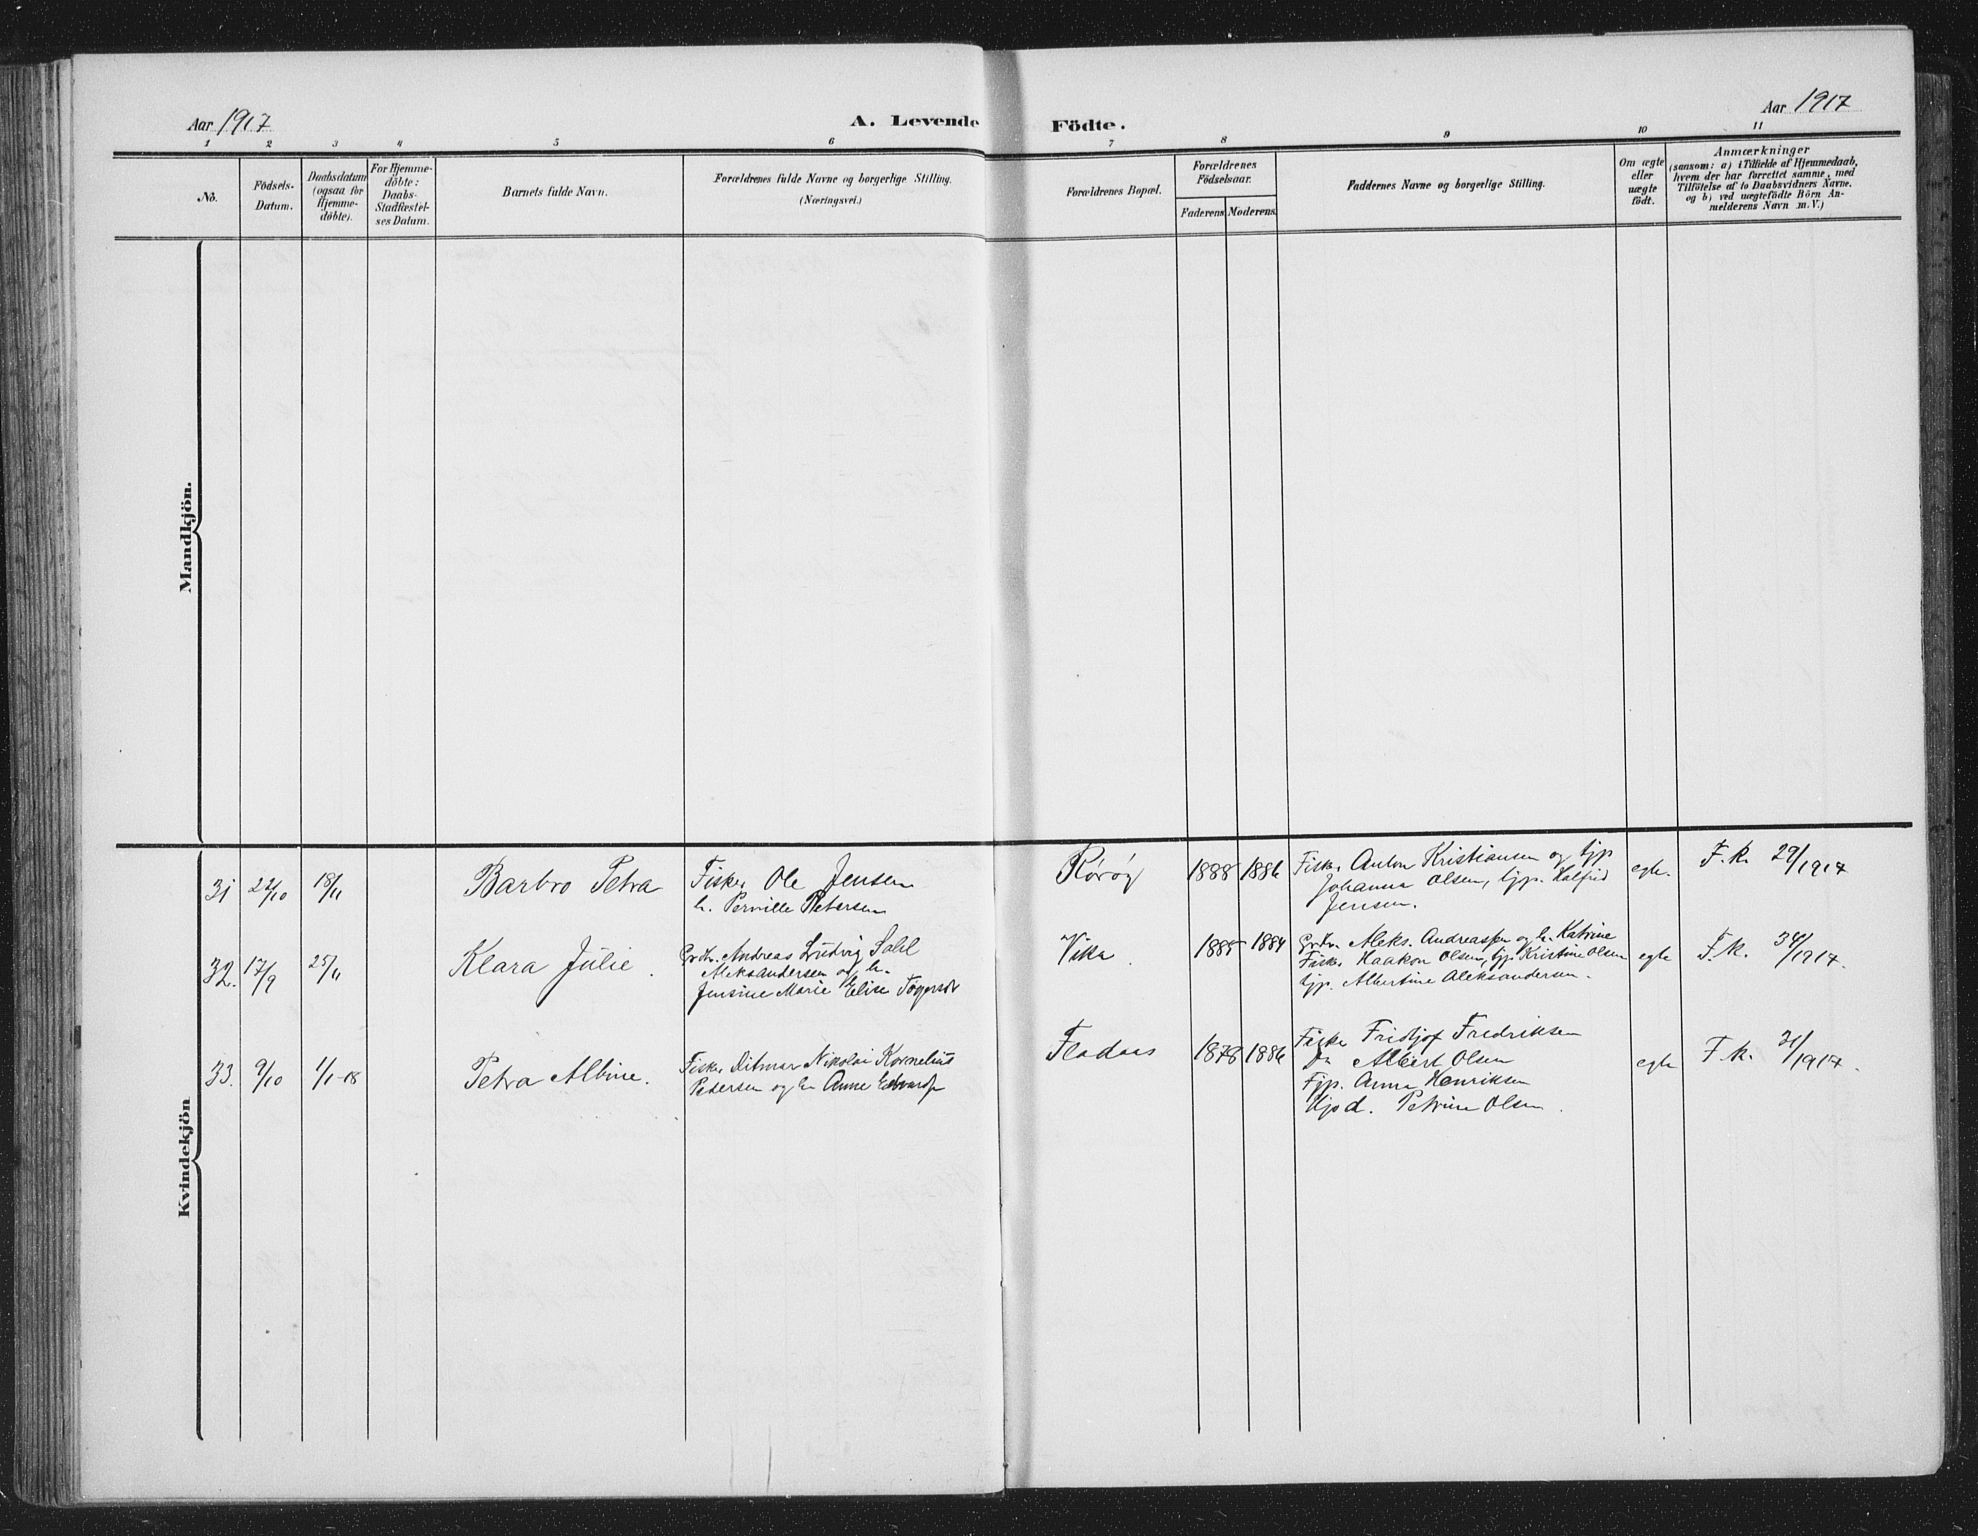 Aar 1917
A. Levende Födte.
Aar 1917
1 2 3 4 5 6 7 8 9 10 11
No.
Födsels-
Datum.
Daabsdatum
(ogsaa for
Hjemme-
döbte).
For Hjemme-
döbte:
Daabs-
Stadfæstel-
ses Datum.
Barnets fulde Navn.
Forældrenes fulde Navne og borgerlige Stilling.
(Næringsvei.)
Forældrenes Bopæl.
Forældrenes
Födselsaar.
Faderens Moderens
Faddernes Navne og borgerlige Stilling.
Om ægte
eller
uægte
födt.
Anmærkninger
(saasom: a) i Tilfælde af Hjemmedaab,
hvem der har forrettet samme, med
Tilföielse af to Daabsvidners Navne.
og b) ved uægtefödte Börn An-
melderens Navn m. V.)
Mandkjön.
Kvindekjön
31 22/10 18/11
Barbro Petra
Fisker Ole Jensen
h. Pernille Petersen
Rørøy
1888 1886
Fisk. Anton Kristiansen og tjp
Johanna Olsen, tjp. Halfrid
Jensen.
egte.
F. k. 29/1917
32. 17/9 25/11
Klara Julie.
Grdbr. Andreas Ludvig Sahl
Aleksandersen og h.
Jensine Marie Elise
Vika.
1885 1884
Grdbr. Aleks. Andreassen og h. Katrine
Fisk. Haakon Olsen, tjp. Kristine Olsen
tjp. Albertine Aleksandersen.
egte
F. k. 34/1917.
33. 9/10 1/1-18
Petra Albine.
Fisker Ditmar Nikolai Kornelius
Petersen og h. Anne
Fladaas
1878 1886
Fisker Fridtjof Fredriksen
Do Albert Olsen
Tjp. Anna Henriksen
Petrine Olsen.
egte
F. k. 31/1917.